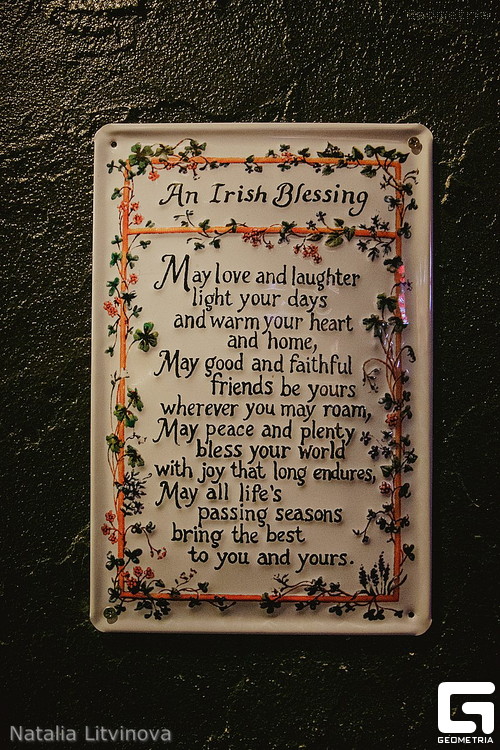 An Irish Blessing
May love and laughter
light your days
and warm your heart
and home,
May good and faithful
friends be yours
wherever you may roam,
May peace and plenty
bless your world
with joy that long endures,
May all life's
passing seasons
bring the best
to you and yours.
Natalia Litvinova
GEOMETRIA